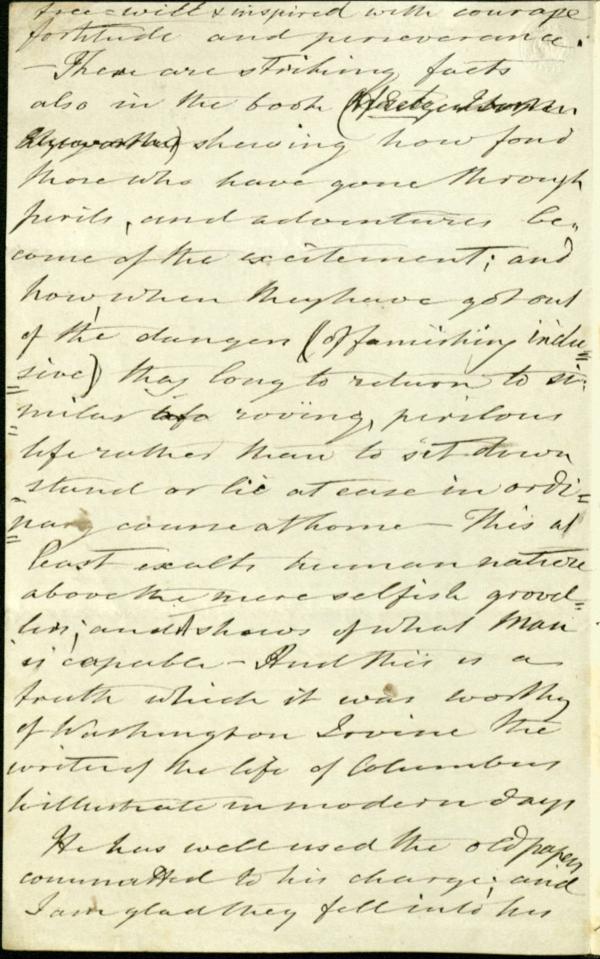 free-will & inspired with courage
fortitude and perseverance.
— There are striking facts
also in the book (
) shewing how fond
those who have gone through
perils, and adventures be-
come of the excitement; and
how, when they have got out
of the dangers (of famishing inclu=
=sive) they long to return to si=
=milar life roving, perilous
life rather than to sit down
stand or lie at ease in ordi=
=nary course at home — This at
least exalts human nature
above the mere selfish grovel=
lers; and shows of what Man
is capable — And this is a
truth which it was worthy
of Washington Irvine the
writer of the life of Columbus
to illustrate in modern days
He has well used the old papers
committed to his charge; and
I am glad they fell into his